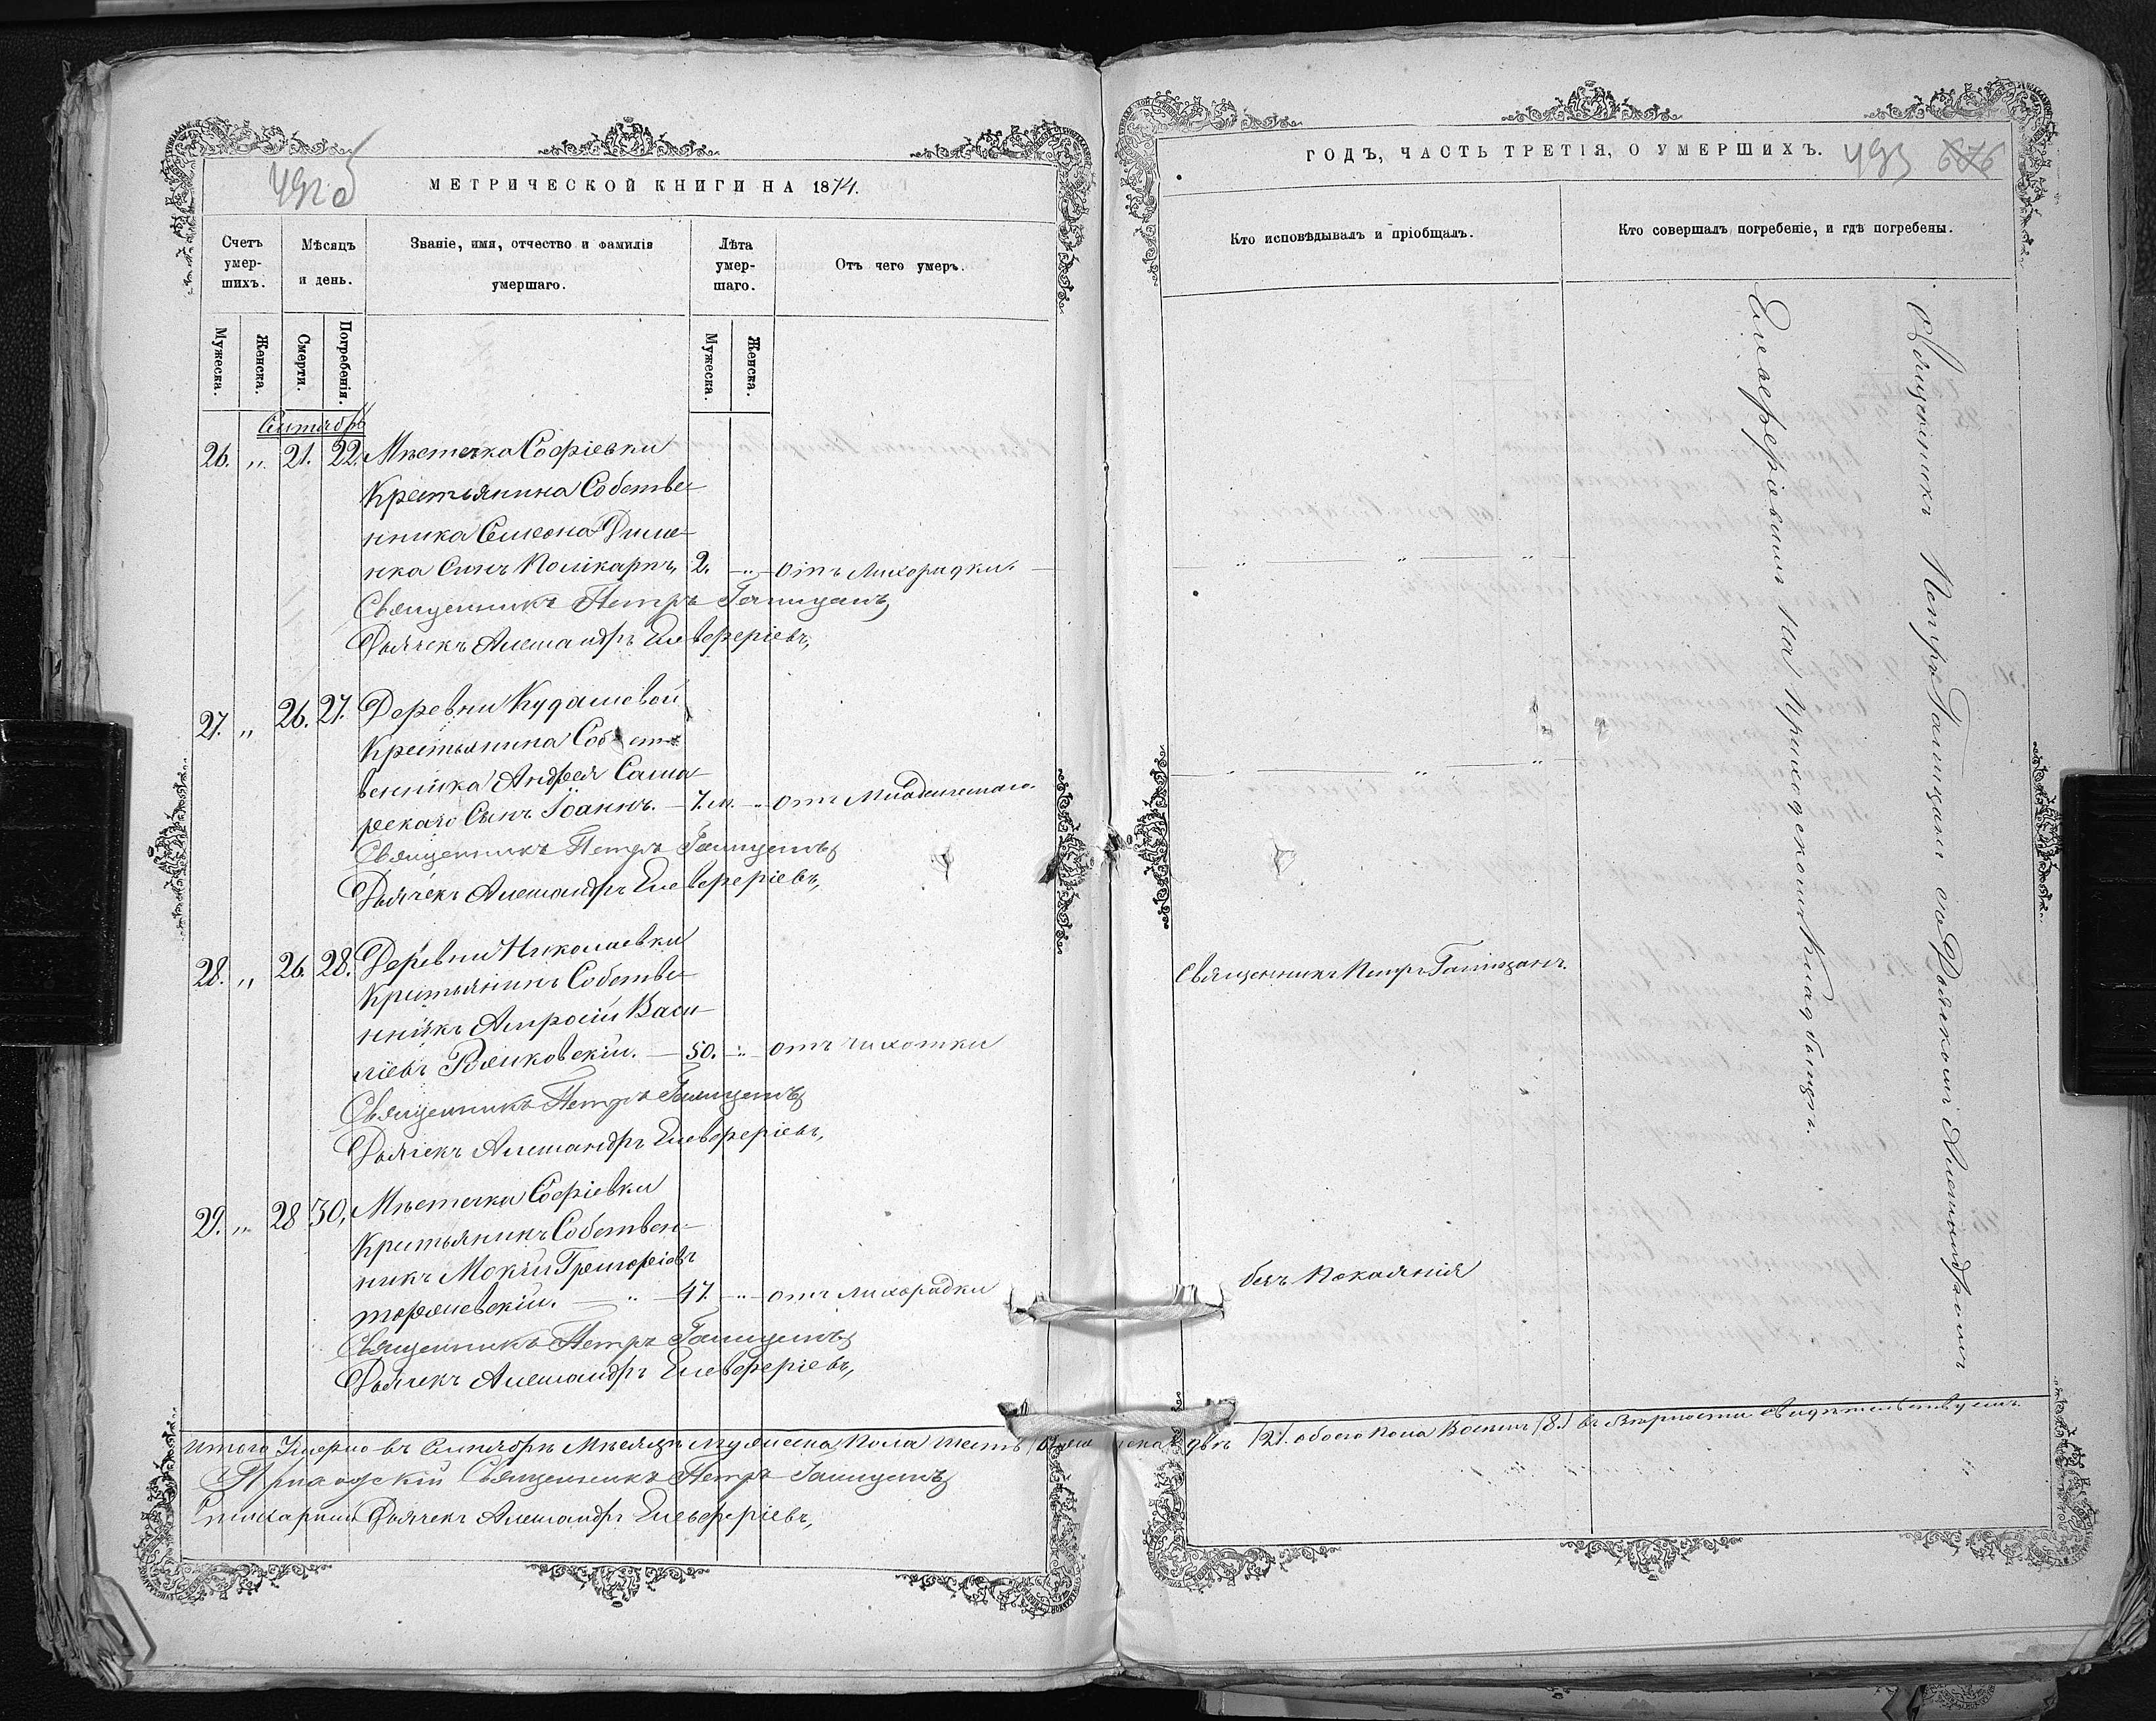 492 об
МЕТРИЧЕСКОЙ КНИГИ НА 1874.
Счетъ умер-шихъ.
Мѣсяцъ и день.
Званіе, имя, отчество и фамилія умершаго.
Лѣта умер-шаго.
Отъ чего умеръ.
Мужеска.
Женска.
Смерти.
Погребенія.
Мужеска.
Женска.
Сентябрь
26. „ 21. 22. Мѣстечка Софіевки
Крестьянина Собстве-
нника Семена
нка Сынъ Поликарпъ, 2. „ отъ Лихорадки.
Священникъ Петръ Галицанъ
Дьячекъ Александръ Елевферіевъ,
27. „ 26. 27. Деревни Кудашовой
Крестьянина Собст-
венника Андрея Сама-
рскаго Сынъ Іоаннъ. 7. м. „ отъ Младенческаго.
Священникъ Петръ Галицанъ
Дьячекъ Александръ Елевферіевъ,
28. „ 26. 28. Деревни Николаевки
Крестьянинъ Собстве-
нникъ Амросій Васи-
ліевъ 50. „ отъ чихотки
Священникъ Петръ Галицанъ
Дьячекъ Александръ Елевферіевъ,
29. „ 28 30, Мѣстечка Софіевки
Крестьянинъ Собствен-
никъ Мокій Григоріевъ
47. „ отъ Лихорадки
Священникъ Петръ Галицанъ
Дьячекъ Александръ Елевферіевъ,
итого Умерло въ Сентябрѣ Мѣсяцѣ мужеска Пола шесть
Приходскій Священникъ Петръ Галицанъ
Дьячекъ Александръ Елевферіевъ,
ГОДЪ, ЧАСТЬ ТРЕТІЯ, О УМЕРШИХЪ.
493 676
Кто исповѣдывалъ и пріобщалъ.
Кто совершалъ погребеніе, и гдѣ погребены.
Священникъ Петръ Галицанъ.
безъ Покаянія
Священникъ Петръ Галицанъ со Дьячкомъ Александромъ
Елевферіевымъ на Приходскомъ Кладбищѣ.
двѣ /2/. обоего пола Восемь /8/ въ вѣрности свидѣтельствуемъ